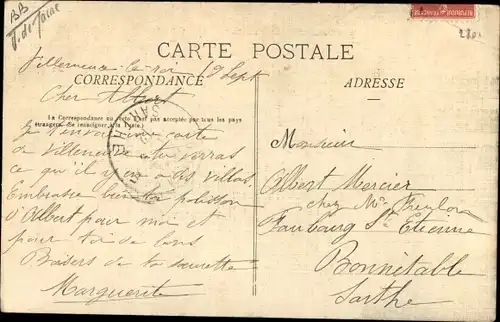 BB
CARTE POSTALE
Villeneuve-le-roi 9 Sept
CORRESPONDANCE
ADRESSE
Cher Albert
La Correspondance au recto n'est pas acceptée par tous les pays
étrangers. (Se renseigner à la Poste)
Je t'envoi une carte
de Villeneuve tu verras
ce qu'il y en a des villas.
Embrasse bien ton polisson
d'Albert pour moi et
pour toi de bons
Baisers de ta sœurette
Marguerite
SARTHE
Monsieur
Albert Mercier
chez Mr
Faubourg St Etienne
Bonnétable
Sarthe